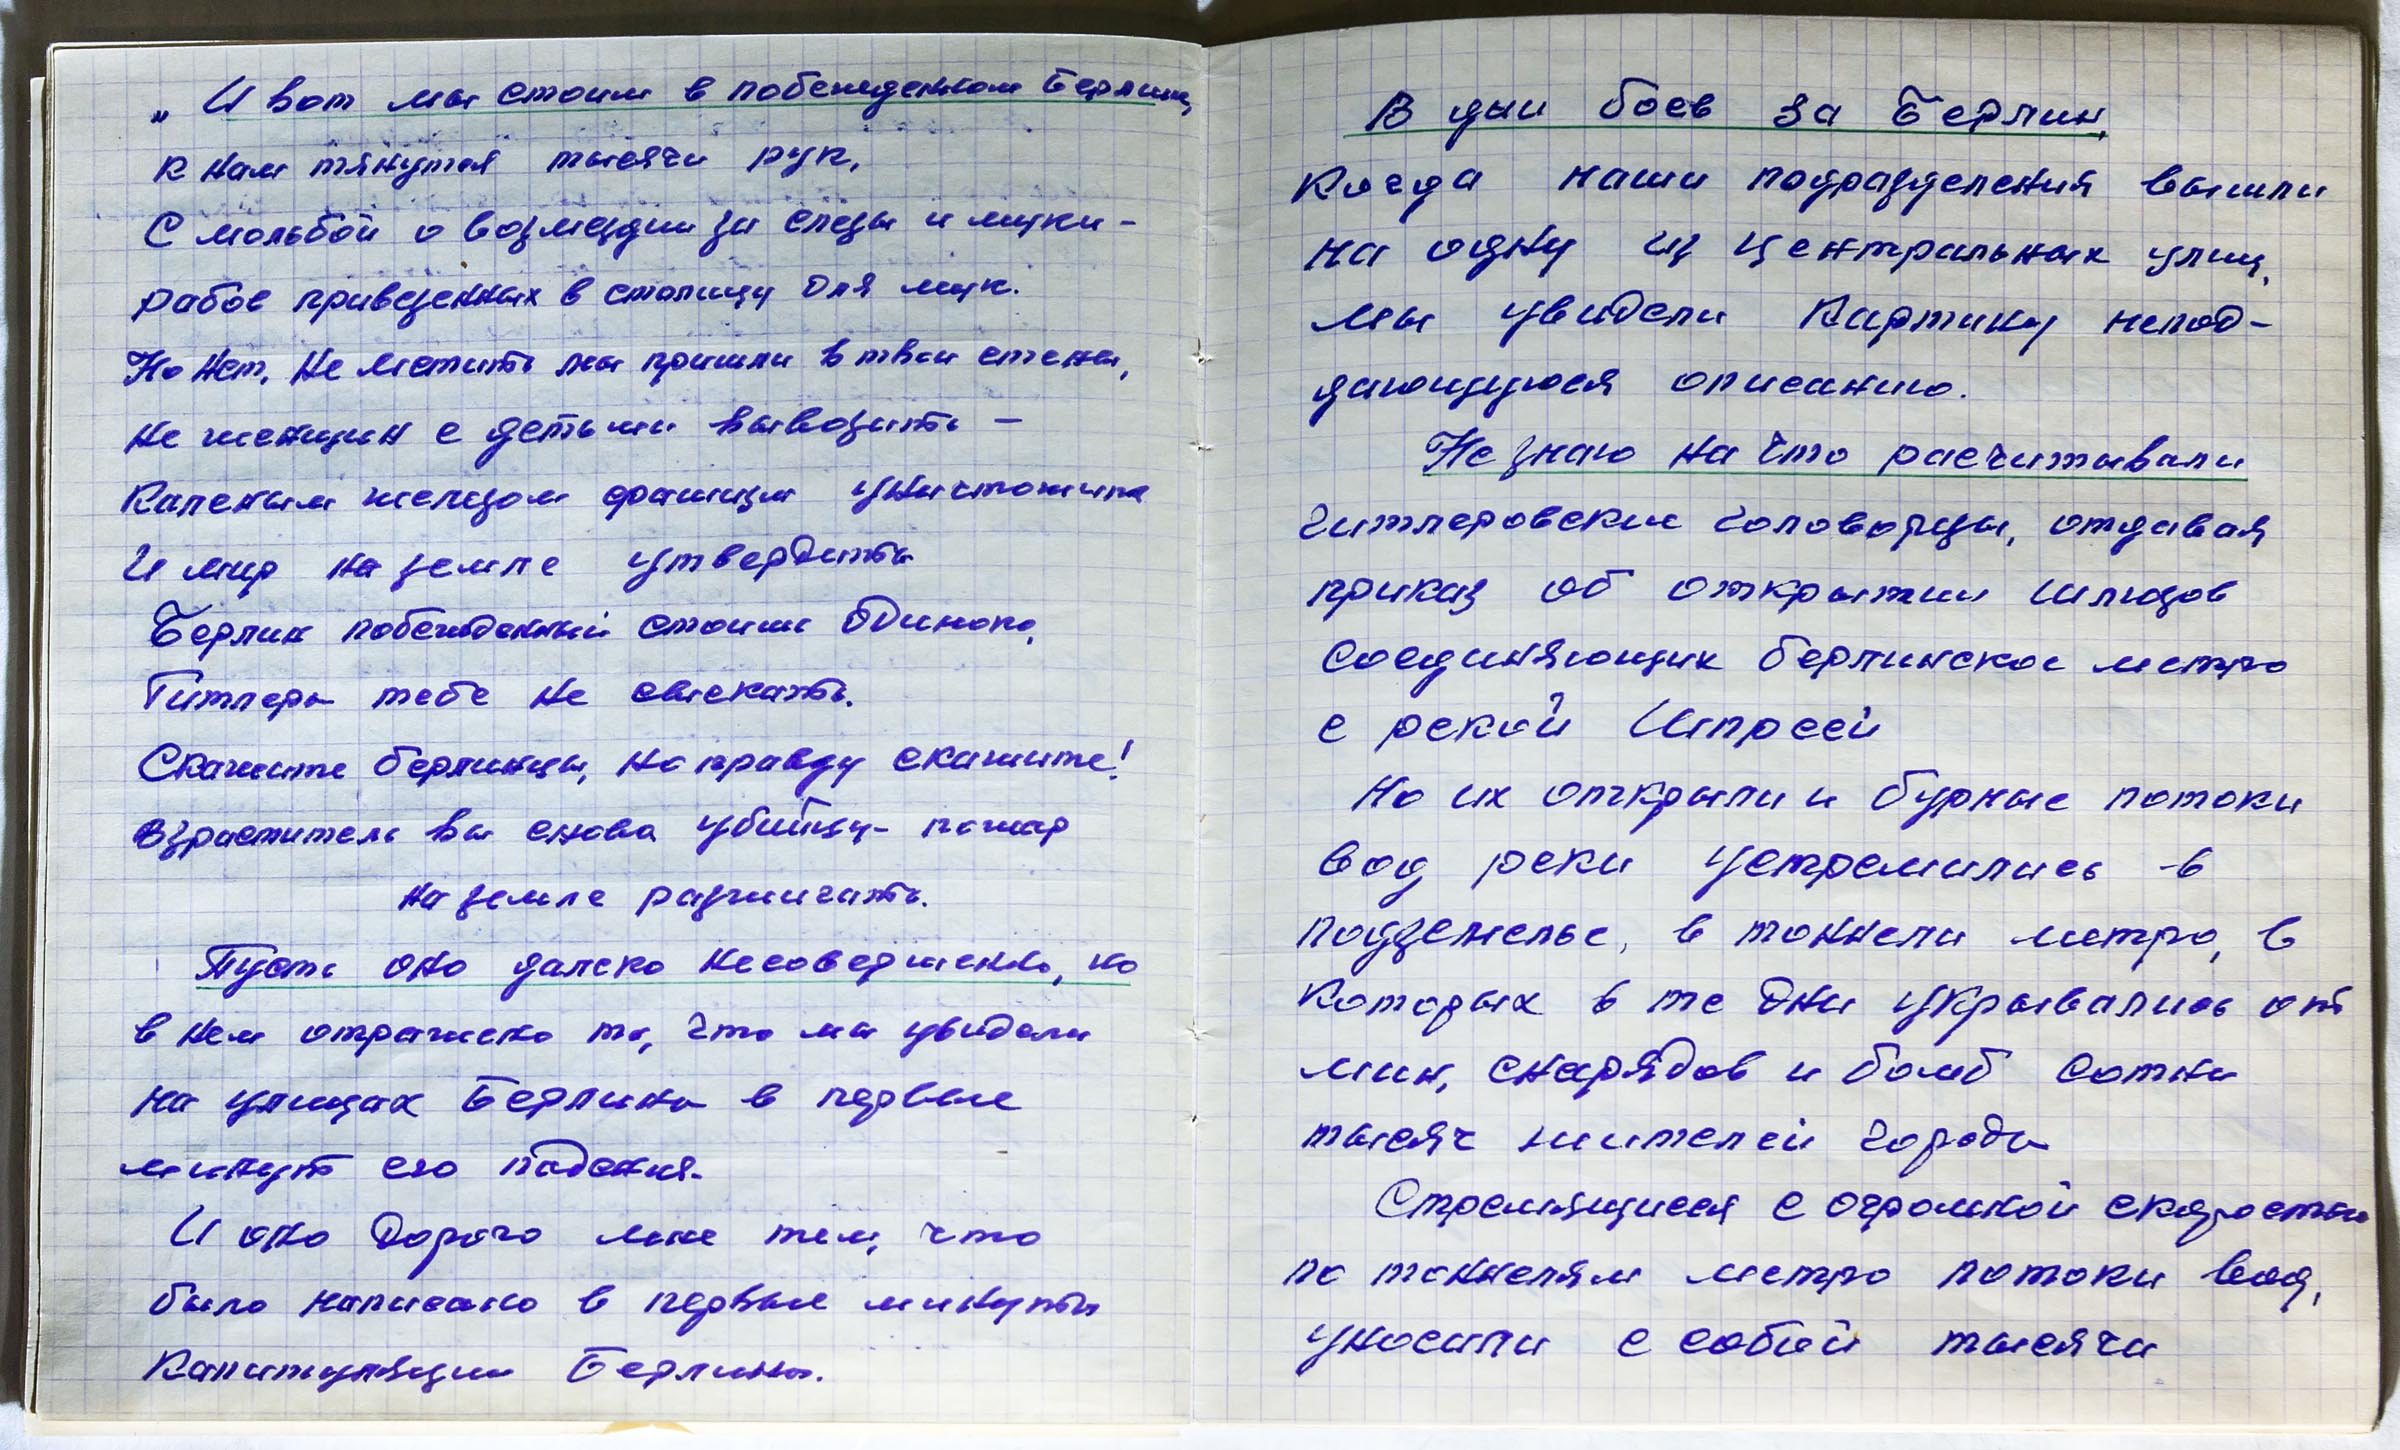 „И вот мы стоим в побежденном Берлине,
к нам тянутся тысячи рук,
С мольбой о возмездии за слезы и муки -
рабов привезенных в столицу для мук.
Но нет, не мстить мы пришли в твои стены,
не женщин с детьми вывозить -
Каленым железом фашизм уничтожить
И мир на земле утвердить
Берлин побежденный стоишь одиноко,
Гитлера тебе не сыскать.
Скажите берлинцы, но правду скажите!
Взрастители вы снова убийцу - пожар
на земле разжигать.
Пусть оно далеко несовершенно, но
в нем отражено то, что мы увидели
на улицах Берлина в первые
минут его падения.
И оно дорого мне тем, что
было написано в первые минуты
Капитуляции Берлина.
В дни боев за Берлин,
Когда наши подразделения вышли
на одну из центральных улиц,
мы увидели картину непод-
дающуюся описанию.
Не знаю на что расчитывали
гитлеровские головорезы, отдавая
приказ об открытии шлюзов
соединяющих берлинское метро
с рекой Шпреей
Но их открыли и бурные потоки
вод реки устремились в
подземелье, в тоннели метро, в
которых в те дни укрывались от
мин, снарядов и бомб сотни
тысяч жителей города
Стремящиеся с огромной скоростью
по тоннелям метро потоки вод,
уносили с собой тысячи